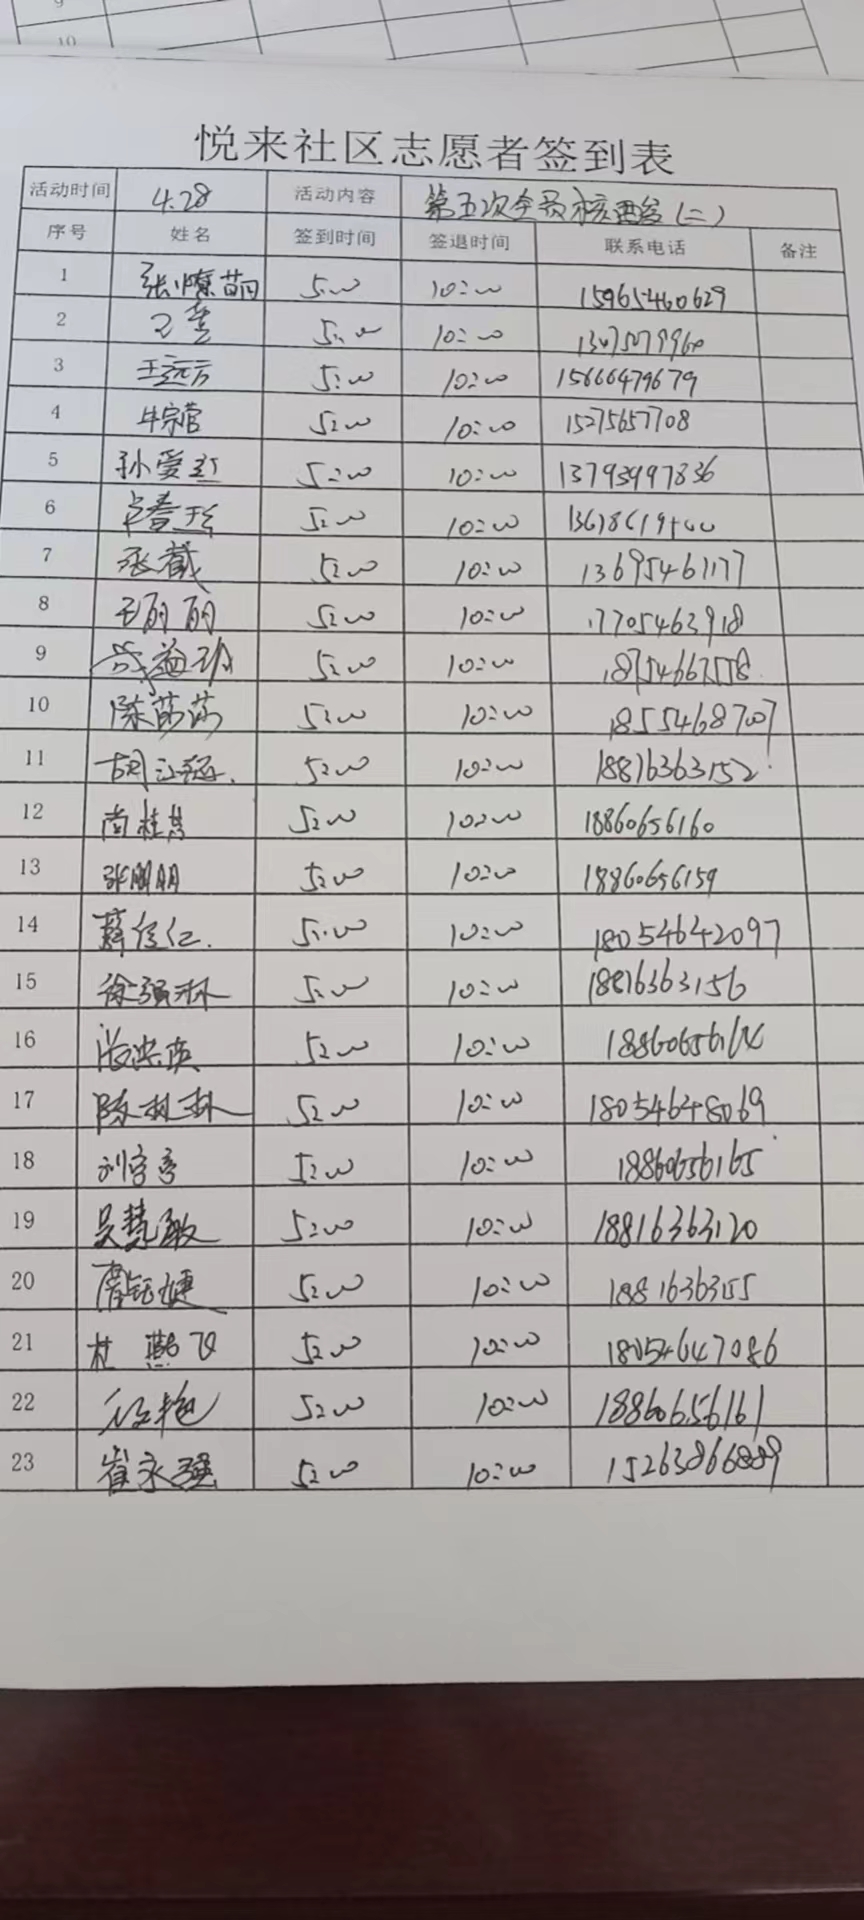 9
10
悦来社区志愿者签到表
活动时间 4.28 活动内容 第五次全员核酸(二)
序号 姓名 签到时间 签退时间 联系电话 备注
1 张 萌 5:00 10:00 15965460629
2 5:00 10:00
3 王远方 5:00 10:00 15666479679
4 牛宗营 5:00 10:00 15275657708
5 孙爱红 5:00 10:00 13793997836
6 5:00 10:00
7 张戴 5:00 10:00 13695461177
8 王丽丽 5:00 10:00 17705463918
9 5:00 10:00 18754667558
10 陈莎莎 5:00 10:00 18554687007
11 胡 5:00 10:00 18816363152
12 尚桂 5:00 10:00 18860656160
13 张鹏朋 5:00 10:00 18860656159
14 薛 仁. 5:00 10:00 18054642097
15 徐强琳 5:00 10:00 18816363156
16 5:00 10:00
17 陈林林 5:00 10:00 18054648069
18 刘 5:00 10:00 18860656165
19 吴慧敏 5:00 10:00 18816363120
20 5:00 10:00 18816363155
21 杜燕飞 5:00 10:00 18054647086
22 艳 5:00 10:00 18860656161
23 崔永强 5:00 10:00 15263866889